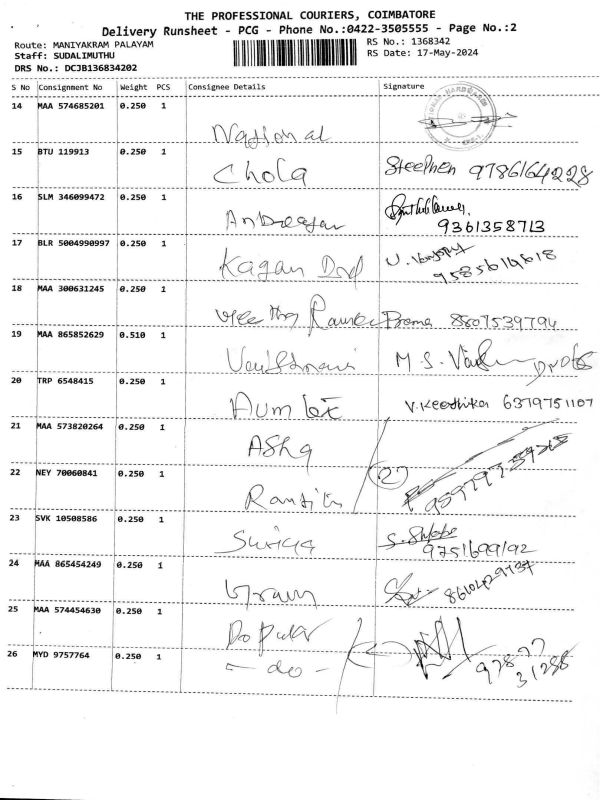 THE PROFESSIONAL COURIERS, COIMBATORE
Delivery Runsheet - PCG - Phone No.:0422-3505555 - Page No.:2
Route: MANIYAKRAM PALAYAM RS No.: 1368342
Staff: SUDALIMUTHU RS Date: 17-May-2024
DRS No.: DCJB136834202
S No Consignment No Weight PCS Consignee Details Signature
14 MAA 574685201 0.250 1 National
15 BTU 119913 0.250 1 Chola Steephen 9786164228
16 SLM 346099472 0.250 1 9361358713
17 BLR 5004990997 0.250 1 Kagan
18 MAA 300631245 0.250 1 Prema 8807539794
19 MAA 865852629 0.510 1 M.S.
20 TRP 6548415 0.250 1 V. Keerthika 6379751107
21 MAA 573820264 0.250 1 Asha
22 NEY 70060841 0.250 1 Ranjith (2)
23 SVK 10508586 0.250 1 Suriya 9751699192
24 MAA 865454249 0.250 1
25 MAA 574454630 0.250 1 Popular
26 MYD 9757764 0.250 1 - do - 97877 31288